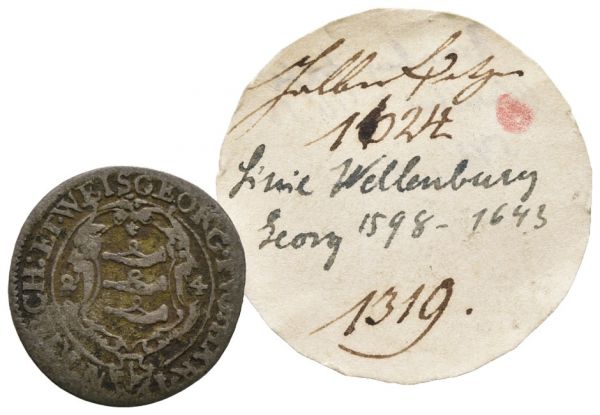 CH:ETWEISGEORG
2 4
Halber Petzn
1624
Linie Wellenburg
Georg 1598 - 1643
1319.